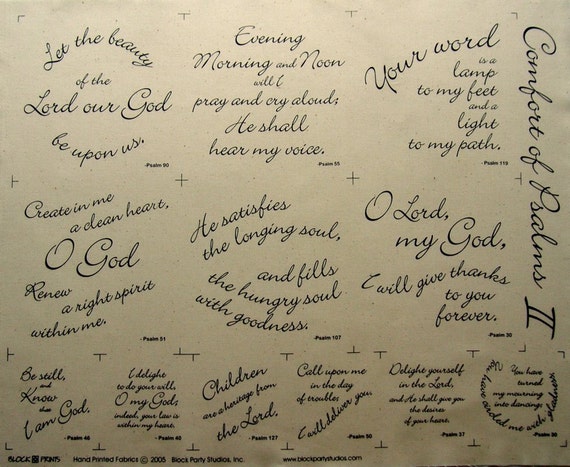 Let the beauty
of the
Lord our God
be upon us.
-Psalm 90
Evening
Morning and Noon
will I
pray and cry aloud;
He shall
hear my voice.
-Psalm 55
Your word
is a
lamp
to my feet
and a
light
to my path.
-Psalm 119
Comfort of Psalms II
Create in me
a clean heart,
O God
Renew
a right spirit
within me.
-Psalm 51
He satisfies
the longing soul,
and fills
the hungry soul
with goodness.
-Psalm 107
O Lord,
my God,
I will give thanks
to you
forever.
-Psalm 30
Be still,
and
Know
that
I am God.
-Psalm 46
I delight
to do your will,
O my God;
indeed, your law is
within my heart.
-Psalm 40
Children
are a heritage from
the Lord.
-Psalm 127
Call upon me
in the day
of trouble;
I will deliver you.
-Psalm 50
Delight yourself
in the Lord,
and He shall give you
the desires
of your heart.
-Psalm 37
You have
turned
my mourning
into dancing;
You have girded me with
gladness.
-Psalm 30
BLOCK PRINTS Hand Printed Fabrics © 2005 Block Party Studios, Inc. www.blockpartystudios.com